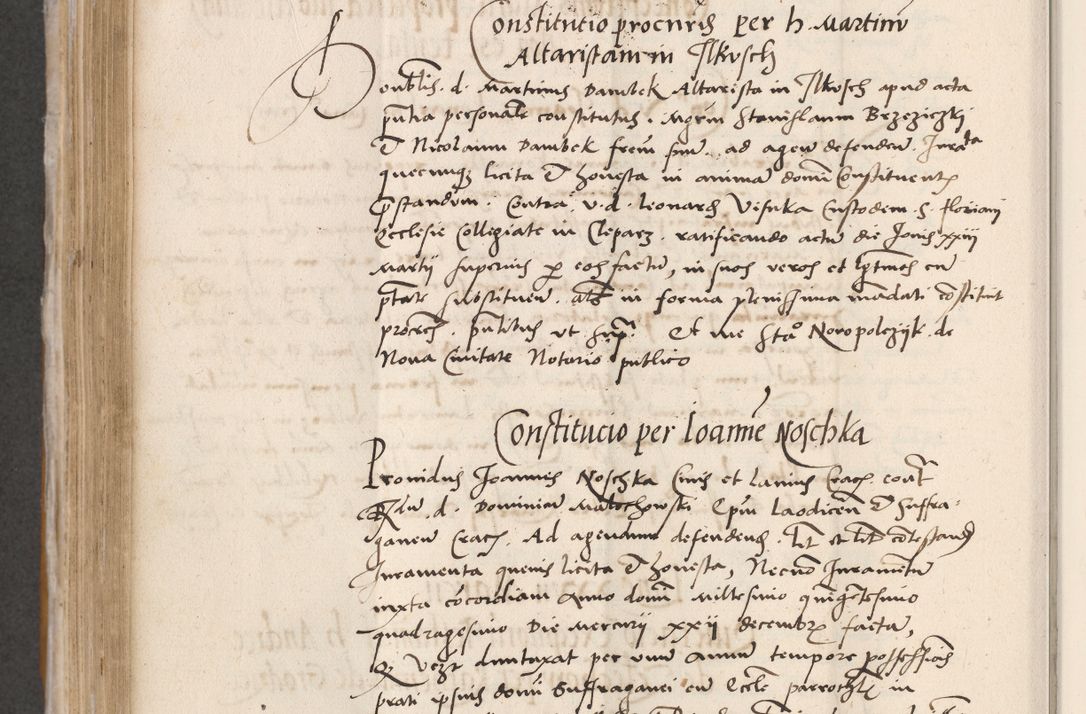 Constitucio procuris per h. Martinum
Altaristam in Ilkusch
honorabilis d. Martinus Dambek Altarista in Ilkusch apud acta
pñtia personalr constitutus. Mgrm Stanislaum Brzeziczki
et Nicolaum Dambek frem suu ad agen defenden. Iura ta
quecunq licita et honesta in anima domi Constituentis
prestandum. Contra v. d. Leonard Custodem S. Floriani
Ecclesie Collegiate in Cleparz. ratificando actu die Jovis xxiij
Martij superius per eos factu, in suos veros et legitimos cu
ptate substituen. als in forma plenissima mandati constituit
procres. pñtibus ut supra. Et me Sta° Novopolczijk de
Nova Civitate Notario publico
Constitucio per Ioannē Noschka
Providus Joannes Noschka Civis et Lanius Crac. contra
Rdm. d. Dominicu Malochowski Epm Laodicen et Suffra-
ganeu Crac. Ad agendum defenden. lit et lit contestand
Iuramenta quevis licita et honesta, Necno Iuramentu
iuxta cōcordiam Anno domi Millesimo quingentesimo
quadragesimo Die Mercurij xxij decembr facta,
duntaxat per unu Annu tempore possessiois
prati ipsius domi Suffraganei cu Eccle in